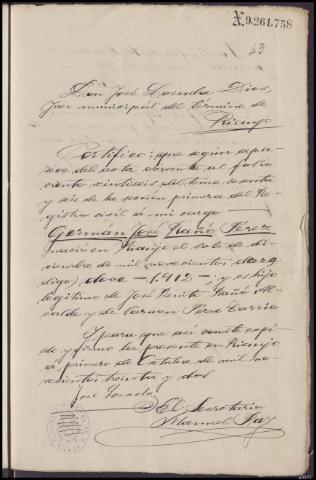 X.9.261.758
43
Don José Losada Dios,
Juez municipal del término de
Rianjo
Certifico: que según apa-
rece del acta obrante al folio
ciento veintiseis del tomo treinta
y seis de la sección primera del Re-
gistro civil á mi cargo
Germán José Fañó Pérez
nació en Rianjo el siete de di-
ciembre de mil novecientos
digo, doce - 1.912 - : y es hijo
legítimo de José Benito Fañó Al-
calde y de Carmen Pérez Barrio
Y para que así conste expi-
do y firmo la presente en Rianjo
á primero de Octubre de mil no-
vecientos treinta y dos
José Losada
El Secretario
Manuel Rey